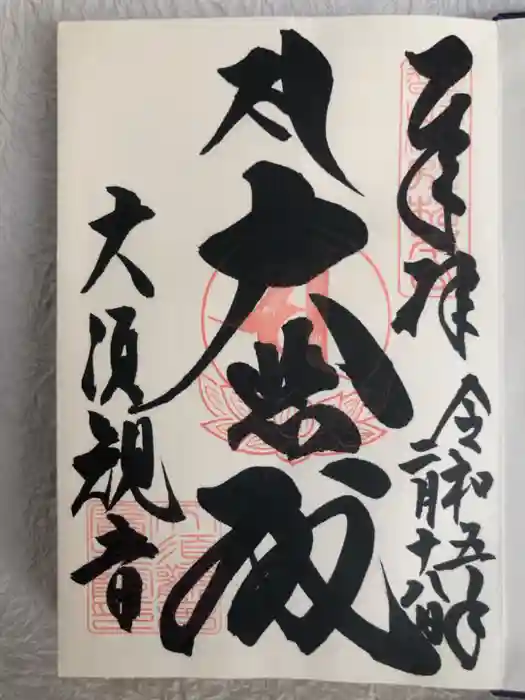 奉拝
令和五年
二月十八日
大悲殿
大須観音